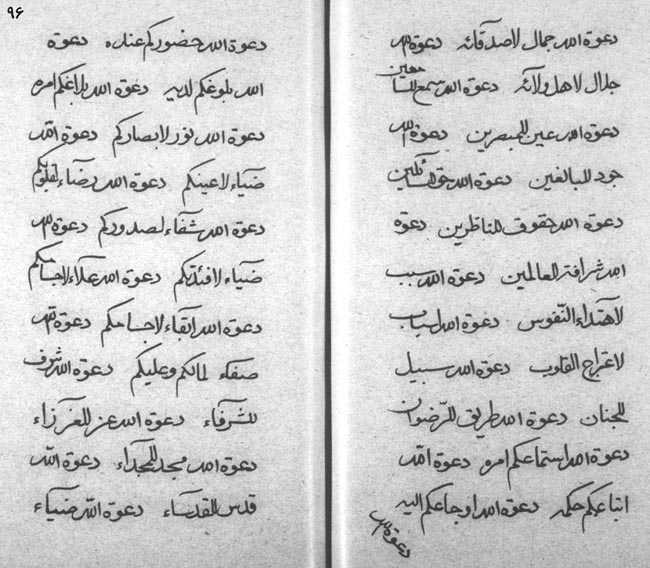 دعوة الله جمال لاصدقائه دعوة الله
جلال لاهل ولائه دعوة الله سمع للسامعين
دعوة الله عين للمبصرين دعوة الله
جود للبالغين دعوة الله حق للسائلين
دعوة الله حقوق للناظرين دعوة
الله شرافة للعالمين دعوة الله سبب
لاهتداء النفوس دعوة الله اسباب
القلوب دعوة الله سبيل
للجنان دعوة الله طريق للرضوان
دعوة الله استماعكم امره دعوة الله
اتباعكم حكمه دعوة الله ارجاعكم اليه
دعوة الله
٩۶
دعوة الله حضوركم عنده دعوة
الله بلوغكم لديه دعوة الله بلاغكم امره
دعوة الله نور لابصاركم دعوة الله
ضياء لاعينكم دعوة الله رضاء لقلوبكم
دعوة الله شفاء لصدوركم دعوة الله
ضياء لافئدتكم دعوة الله علاء لاجسامكم
دعوة الله ابقاء لاجسامكم دعوة الله
لمالكم وعليكم دعوة الله شرف
للشرفاء دعوة الله عز للعززاء
دعوة الله مجد للمجداء دعوة الله
قدس للقدساء دعوة الله ضياء